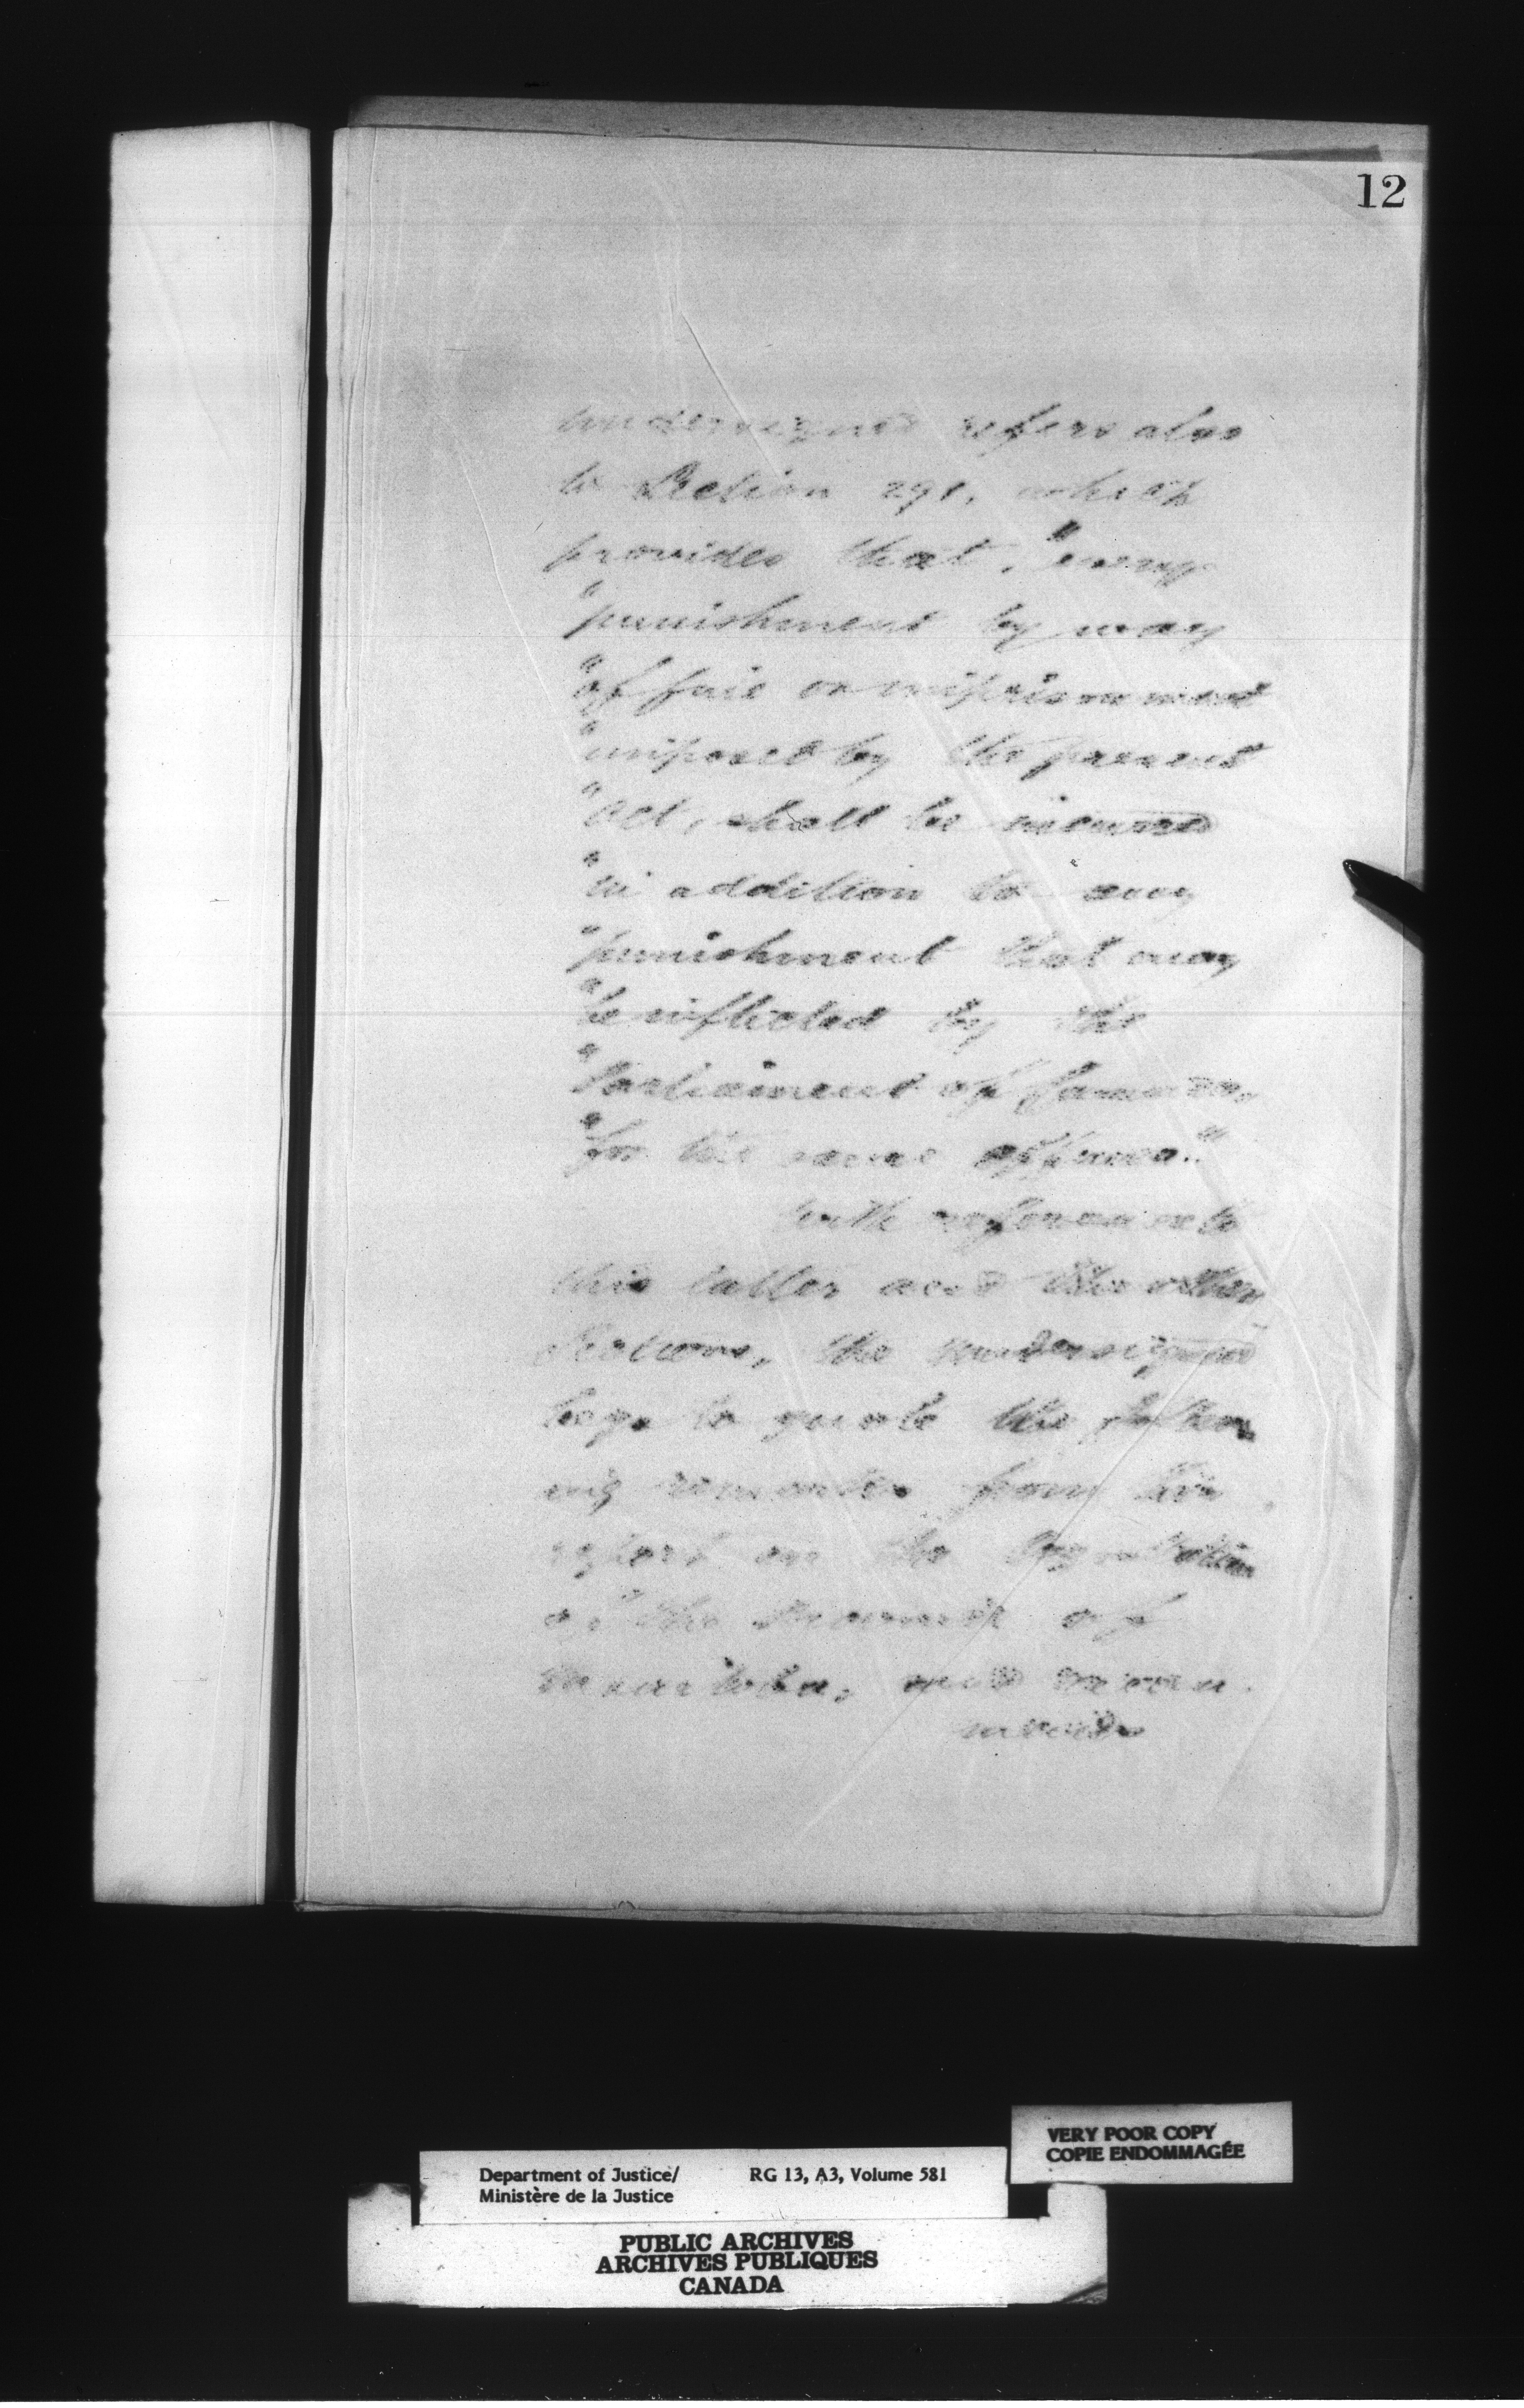 12
undersigned refers also
to Section 291, which
provides that, "every
"punishment by way
"of fine or imprisonment
"imposed by the present
"Act, shall be incurred
"in addition to any
"punishment that may
"be inflicted by the
"Parliament of Canada,
"for the same offence."
With reference to
this latter and the other
Sections, the undersigned
begs to quote the follow
ing remarks from his
report on the legislation
of the Province of
Manitoba, and
VERY POOR COPY
COPIE ENDOMMAGÉE
Department of Justice/ RG 13, A3, Volume 581
Ministère de la Justice
PUBLIC ARCHIVES
ARCHIVES PUBLIQUES
CANADA